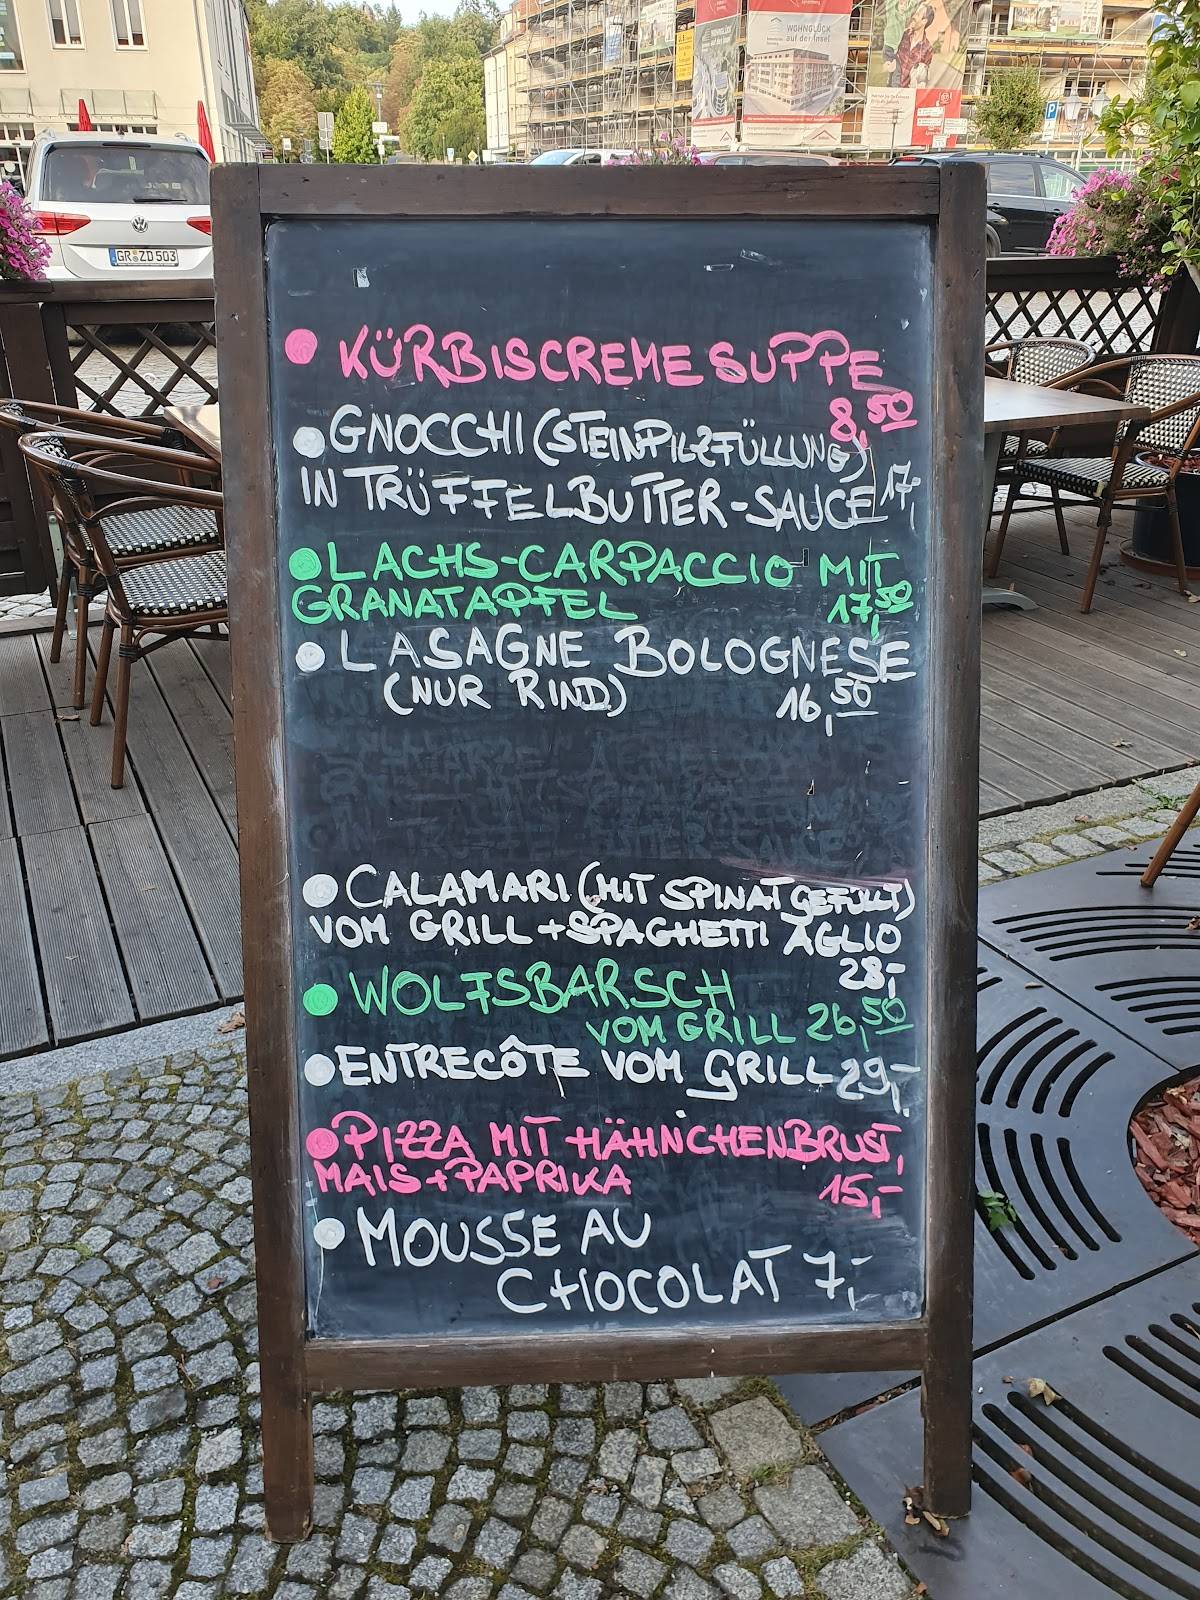 WOHNGLÜCK
auf der Insel
GR ZD 503
KÜRBISCREME SUPPE
8,50
GNOCCHI (STEINPILZFÜLLUNG)
IN TRÜFFELBUTTER-SAUCE 17,-
LACHS-CARPACCIO MIT
GRANATAPFEL 17,50
LASAGNE BOLOGNESE
(NUR RIND) 16,50
CALAMARI (MIT SPINAT GEFÜLLT)
VOM GRILL + SPAGHETTI AGLIO
28,-
WOLFSBARSCH
VOM GRILL 26,50
ENTRECÔTE VOM GRILL 29,-
PIZZA MIT HÄHNCHENBRUST,
MAIS + PAPRIKA 15,-
MOUSSE AU
CHOCOLAT 7,-